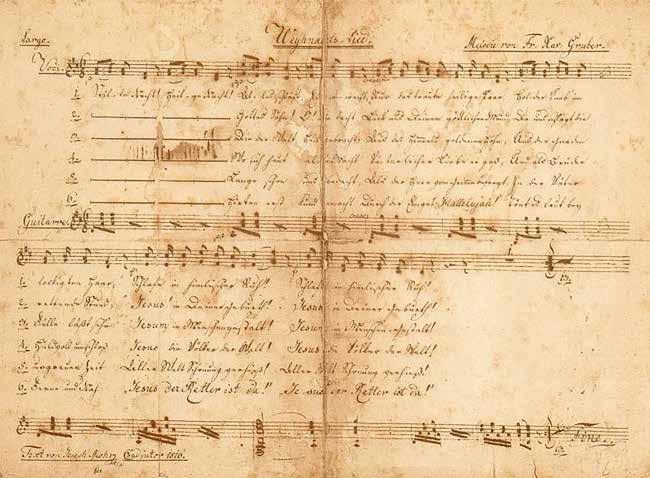 Largo. Weyhnachts-Lied. Melodie von Fr. Xav. Gruber.
Voci
1. Stille Nacht! Heilige Nacht! Alles schläft, Einsam wacht, Nur das traute heilige Paar. Holder Knab im
2. Gottes Sohn! O! wie lacht Lieb' aus deinem göttlichen Mund, Da schlägt uns die
3. Die der Welt Heil gebracht, Aus des Himmels goldenen Höhn, Uns der Gnaden
4. Wo sich heut alle Macht Väterlicher Liebe ergoß, Und als Bruder
5. Lange schon uns bedacht, Als der Herr vom Grimme befreyt, In der Väter
6. Hirten erst kundgemacht Durch der Engel Hallelujah! Tönt es laut bey
Guitarre
1. lockigten Haar, Schlafe in himmlischer Ruh! Schlafe in himmlischer Ruh!
2. rettende Stund, Jesus! in deiner Geburth! Jesus in deiner Geburth!
3. Fülle läßt sehn Jesum in Menschengestalt! Jesum in Menschengestalt!
4. huldvoll umschloß Jesus die Völker der Welt! Jesus die Völker der Welt!
5. urgrauer Zeit Aller Welt Schonung verhieß! Aller Welt Schonung verhieß!
6. Ferne und Nah: "Jesus der Retter ist da!" "Jesus der Retter ist da!"
Fine.
Text von Joseph Mohr Coadjutor 1816.